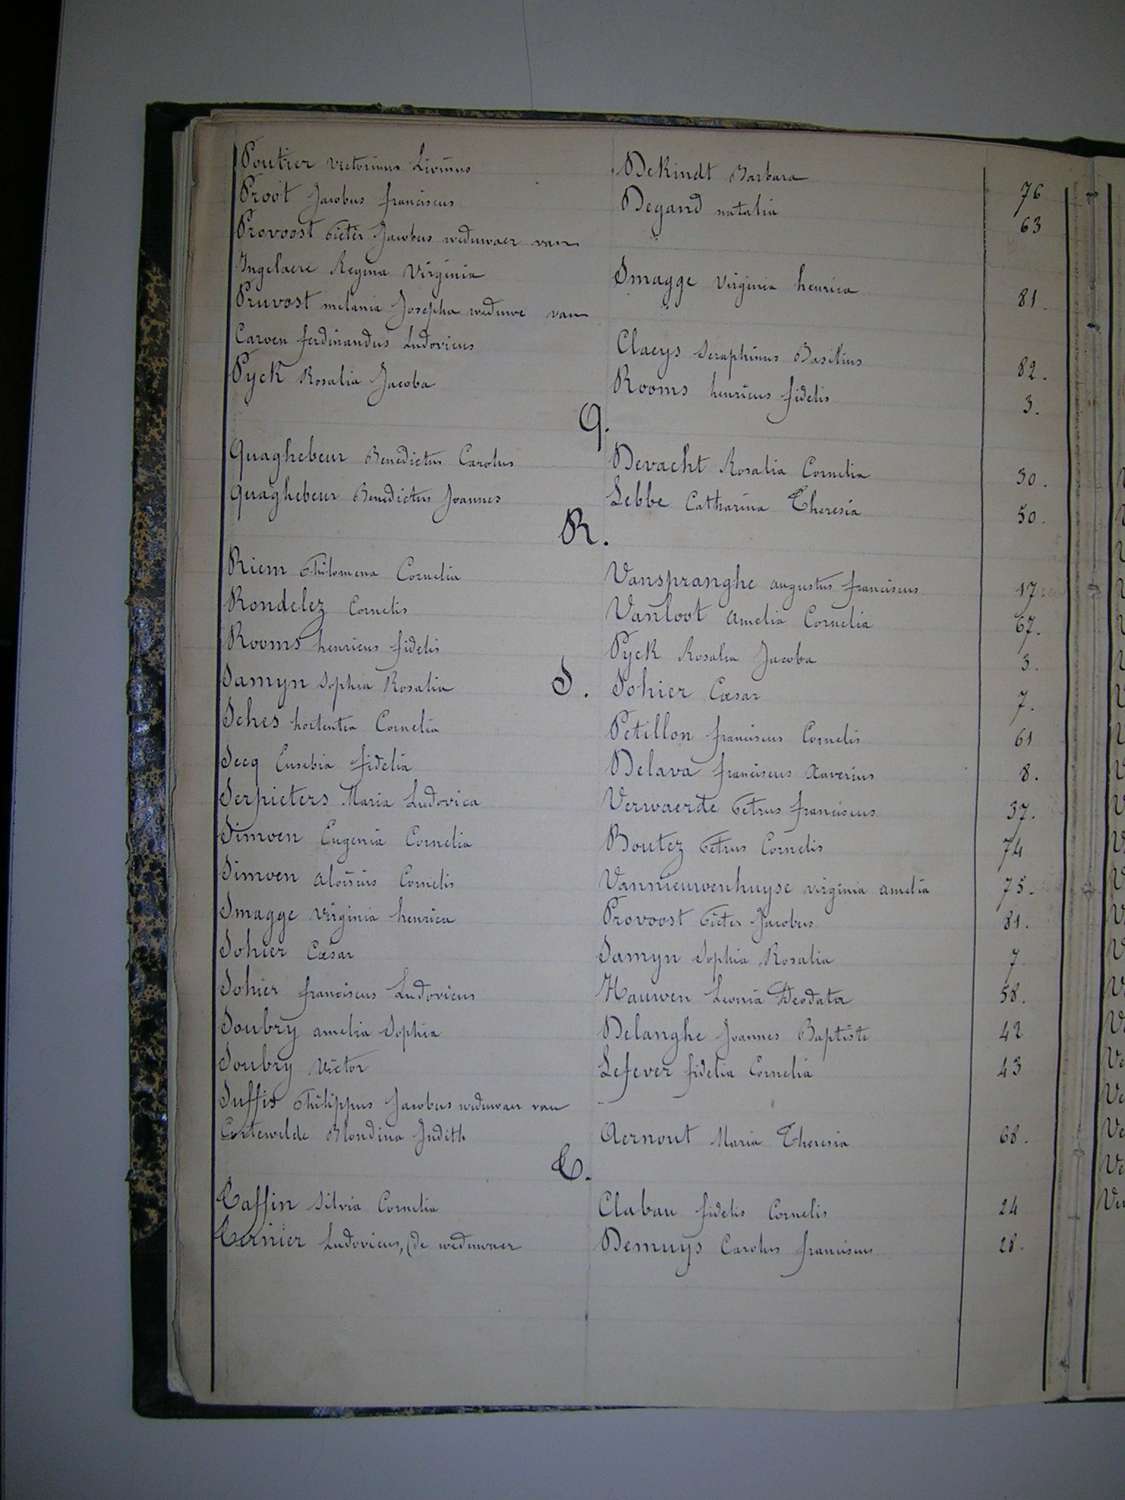 Poutier Victorinus Livinus Dekindt Barbara 76
Proot Jacobus franciscus Degand natalia 63
Provoost Pieter Jacobus weduwaer van
Ingelaere Regina Virginia Smagge Virginia henrica 81.
Pruvost melania Josepha weduwe van
Carven ferdinandus Ludovicus Claeys Seraphinus Basilius 82.
Pyck Rosalia Jacoba Rooms henricus fidelis 3.
Q.
Quaghebeur Benedictus Carolus Devacht Rosalia Cornelia 30.
Quaghebeur Benedictus Joannes Lebbe Catharina Theresia 50.
R.
Riem Philomena Cornelia Vanspranghe augustus franciscus 17
Rondelez Cornelis Vanloot Amelia Cornelia 67.
Rooms henricus fidelis Pyck Rosalia Jacoba 3.
S.
Samyn Sophia Rosalia Sohier Cæsar 7.
Sches hortentia Cornelia Petillon franciscus Cornelis 61
Secq Eusebia fidelia Delava franciscus Xaverius 8.
Serpieters Maria Ludovica Verwaerde Petrus franciscus 37.
Simoen Eugenia Cornelia Boutez Petrus Cornelis 74
Simoen Aloïsius Cornelis Vannieuwenhuyse virginia amelia 75.
Smagge Virginia henrica Provoost Pieter Jacobus 81.
Sohier Cæsar Samyn Sophia Rosalia 7
Sohier franciscus Ludovicus Hauwen Leonia Deodata 58.
Soubry amelia Sophia Delanghe Joannes Baptiste 42
Soubry Victor Lefever fidelia Cornelia 43
Suffis Philippus Jacobus weduwaer van
Cortewilde Blondina Judith Aernout Maria Theresia 68.
T.
Taffin Silvia Cornelia Clabau fidelis Cornelis 24
Ternier Ludovicus, de weduwaer Demuys Carolus franciscus 28.